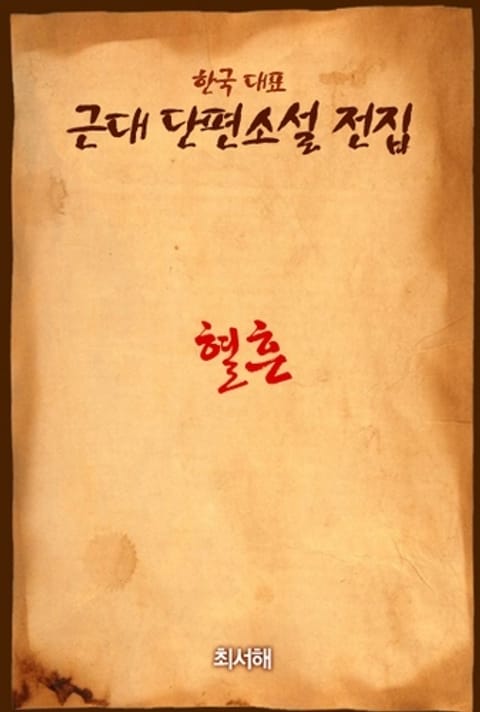 한국 대표
근대 단편소설 전집
혈흔
최서해